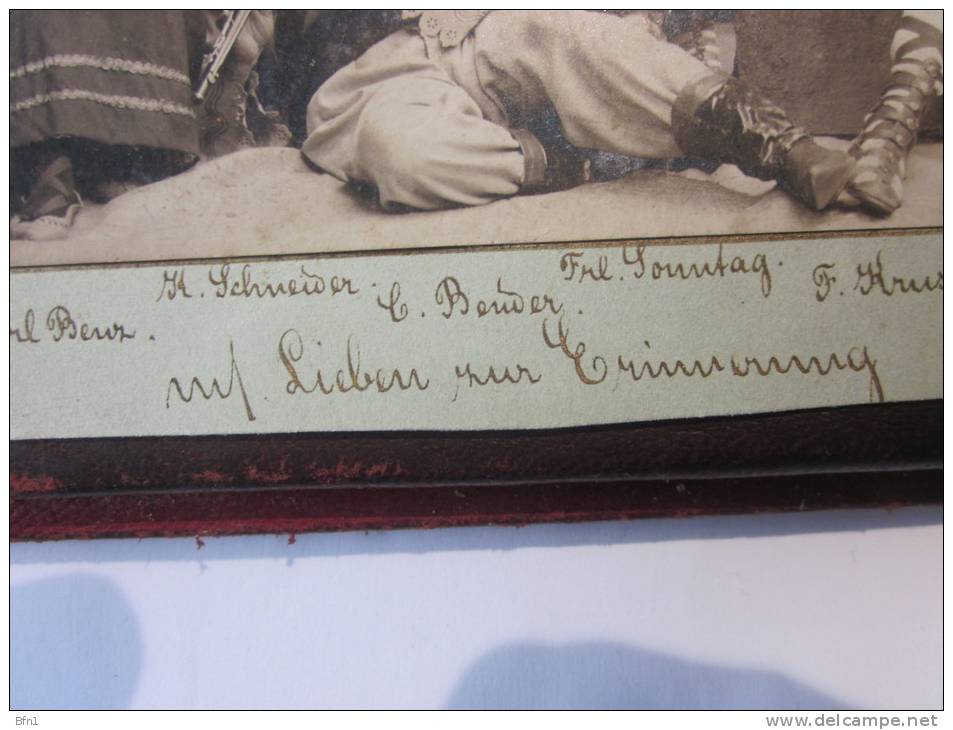 K. Schneider. C. Bender. Frl. Sonntag. F. Krus
rl Benz.
Lieben zur Erinnerung
Bfn1
www.delcampe.net